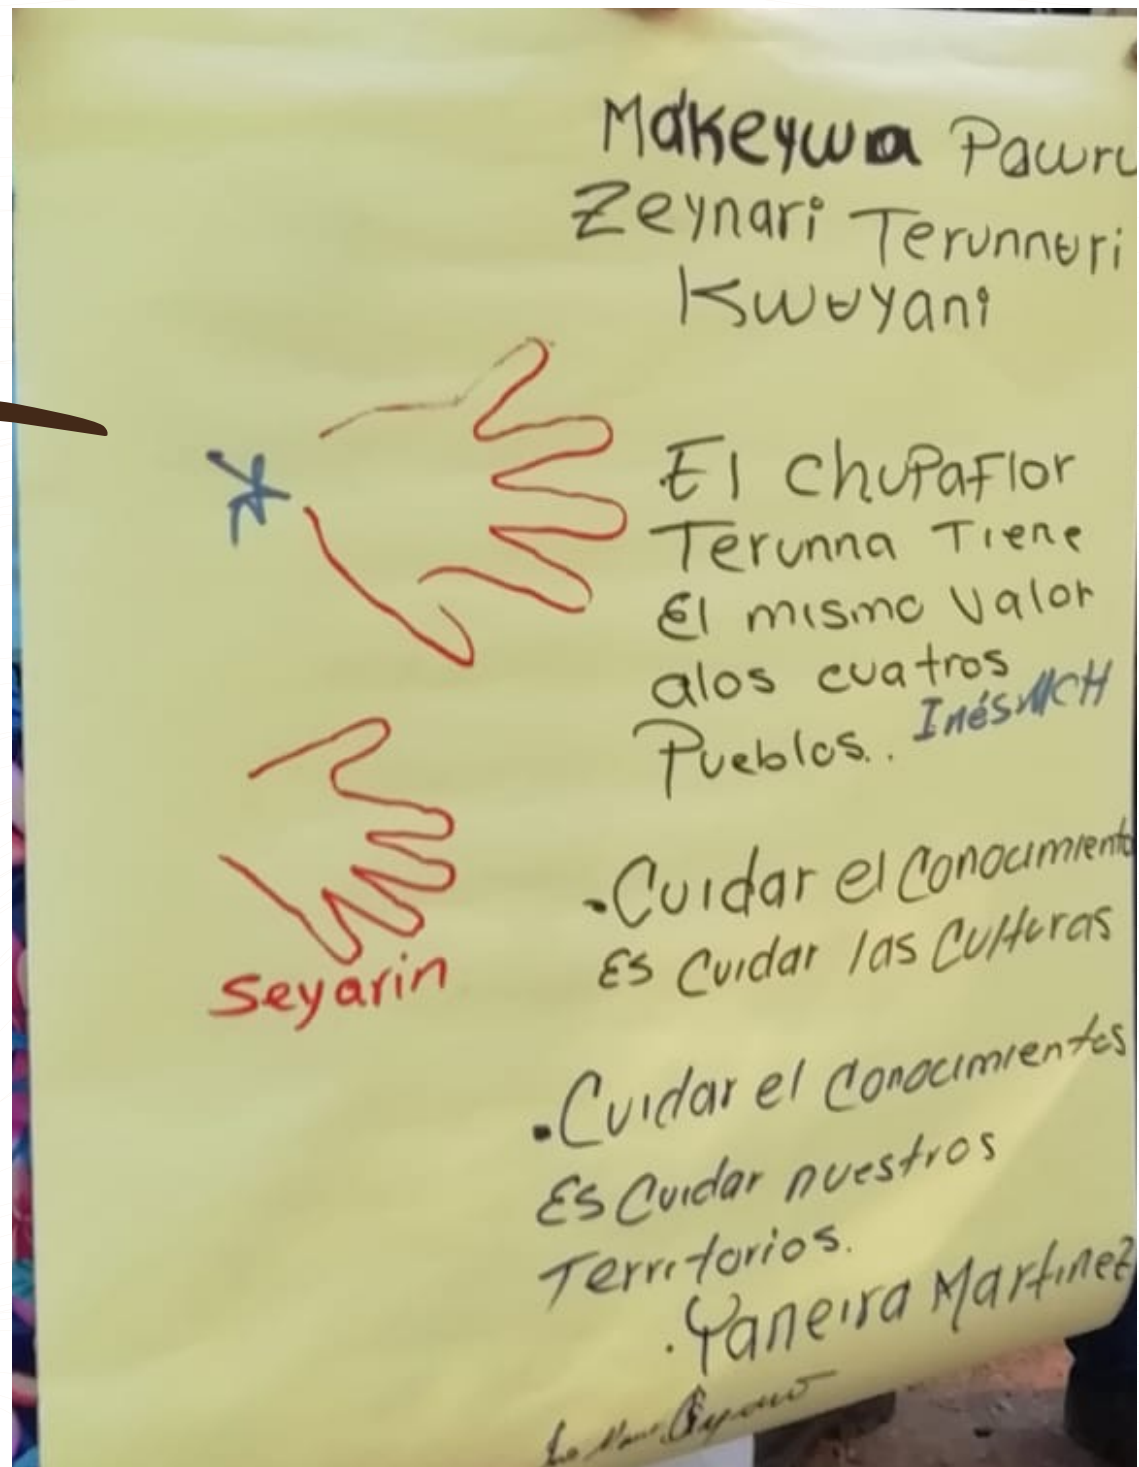 Makeywa Pawru
Zeynari Terunnʉri
Kwʉyani
.El chupaflor
Terunna Tiene
El mismo valor
alos cuatros
Pueblos..
Inés MCH
seyarin
.Cuidar el Conocimiento
Es Cuidar las Culturas
.Cuidar el Conocimientos
Es Cuidar nuestros
Territorios.
.Yaneira Martinez